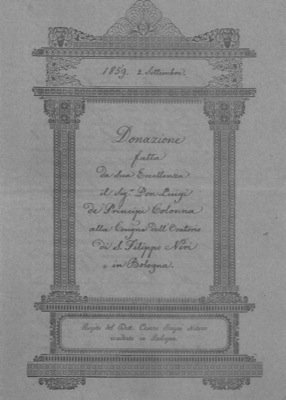 1859. 2 Settembre.
Donazione
fatta
da Sua Eccellenza
il Sig.r Don Luigi
de' Principi Colonna
alla Congne dell'Oratorio
di S. Filippo Neri
in Bologna.
Rogito del Dott. Cesare Notaro
residente in Bologna